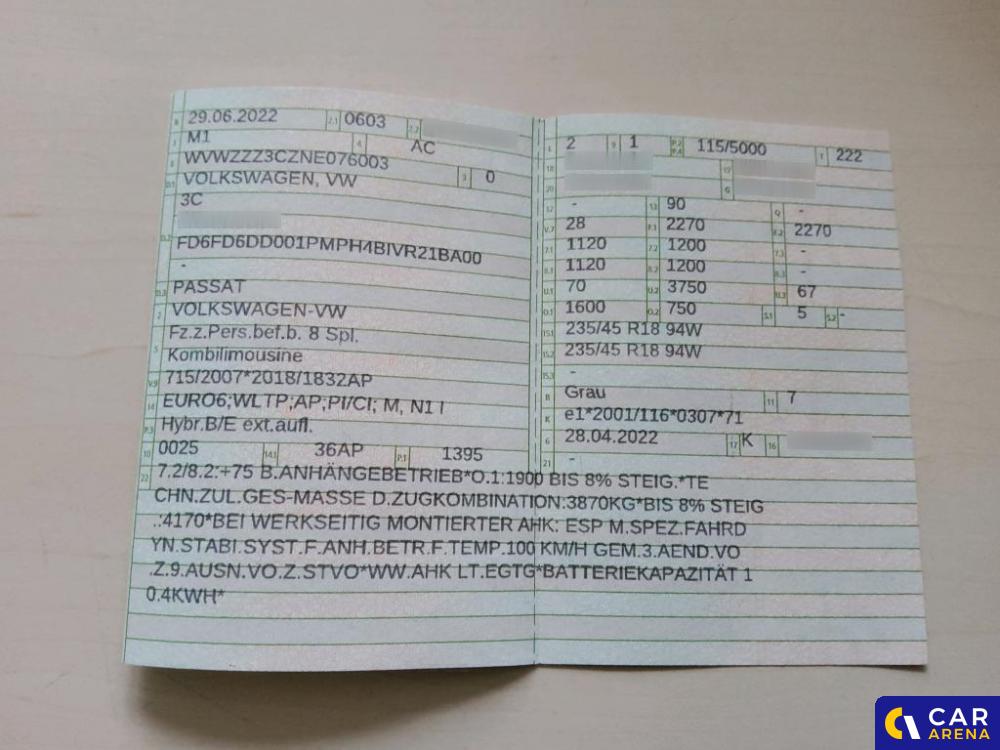 B 29.06.2022 2.1 0603 2.2
J M1 4 AC
E WVWZZZ3CZNE076003 3 0
D.1 VOLKSWAGEN, VW
3C
D.2 FD6FD6DD001PMPH4BIVR21BA00
-
D.3 PASSAT
2 VOLKSWAGEN-VW
5 Fz.z.Pers.bef.b. 8 Spl.
Kombilimousine
V.9 715/2007*2018/1832AP
14 EURO6;WLTP;AP;PI/CI; M, N1 I
P.3 Hybr.B/E ext.aufl.
10 0025 14.1 36AP P.1 1395
L 2 9 1 P.2 P.4 115/5000 T 222
18 19
20 G
12 - 13 90 Q -
V.7 28 F.1 2270 F.2 2270
7.1 1120 7.2 1200 7.3 -
8.1 1120 8.2 1200 8.3 -
U.1 70 U.2 3750 U.3 67
O.1 1600 O.2 750 S.1 5 S.2 -
15.1 235/45 R18 94W
15.2 235/45 R18 94W
15.3 -
R Grau 11 7
K e1*2001/116*0307*71
6 28.04.2022 17 K 16
21 -
22 7.2/8.2:+75 B.ANHÄNGEBETRIEB*O.1:1900 BIS 8% STEIG.*TE
CHN.ZUL.GES-MASSE D.ZUGKOMBINATION:3870KG*BIS 8% STEIG
.:4170*BEI WERKSEITIG MONTIERTER AHK: ESP M.SPEZ.FAHRD
YN.STABI.SYST.F.ANH.BETR.F.TEMP.100 KM/H GEM.3.AEND.VO
.Z.9.AUSN.VO.Z.STVO*WW.AHK LT.EGTG*BATTERIEKAPAZITÄT 1
0.4KWH*
CAR
ARENA